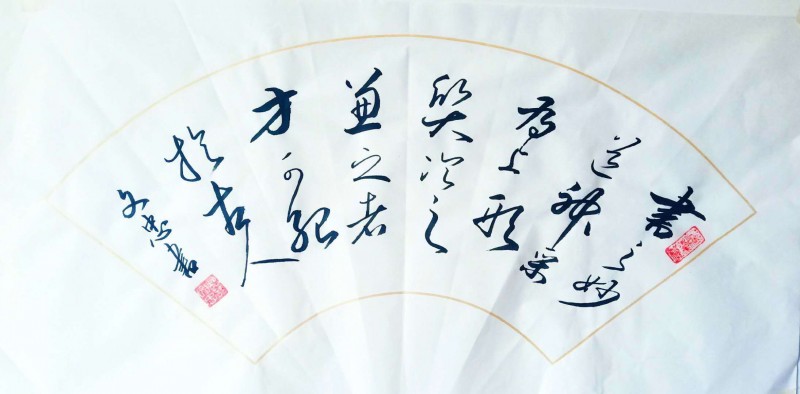 書之妙
道神采
為上形
質次之
兼之者
方可紹
於古人
文忠書